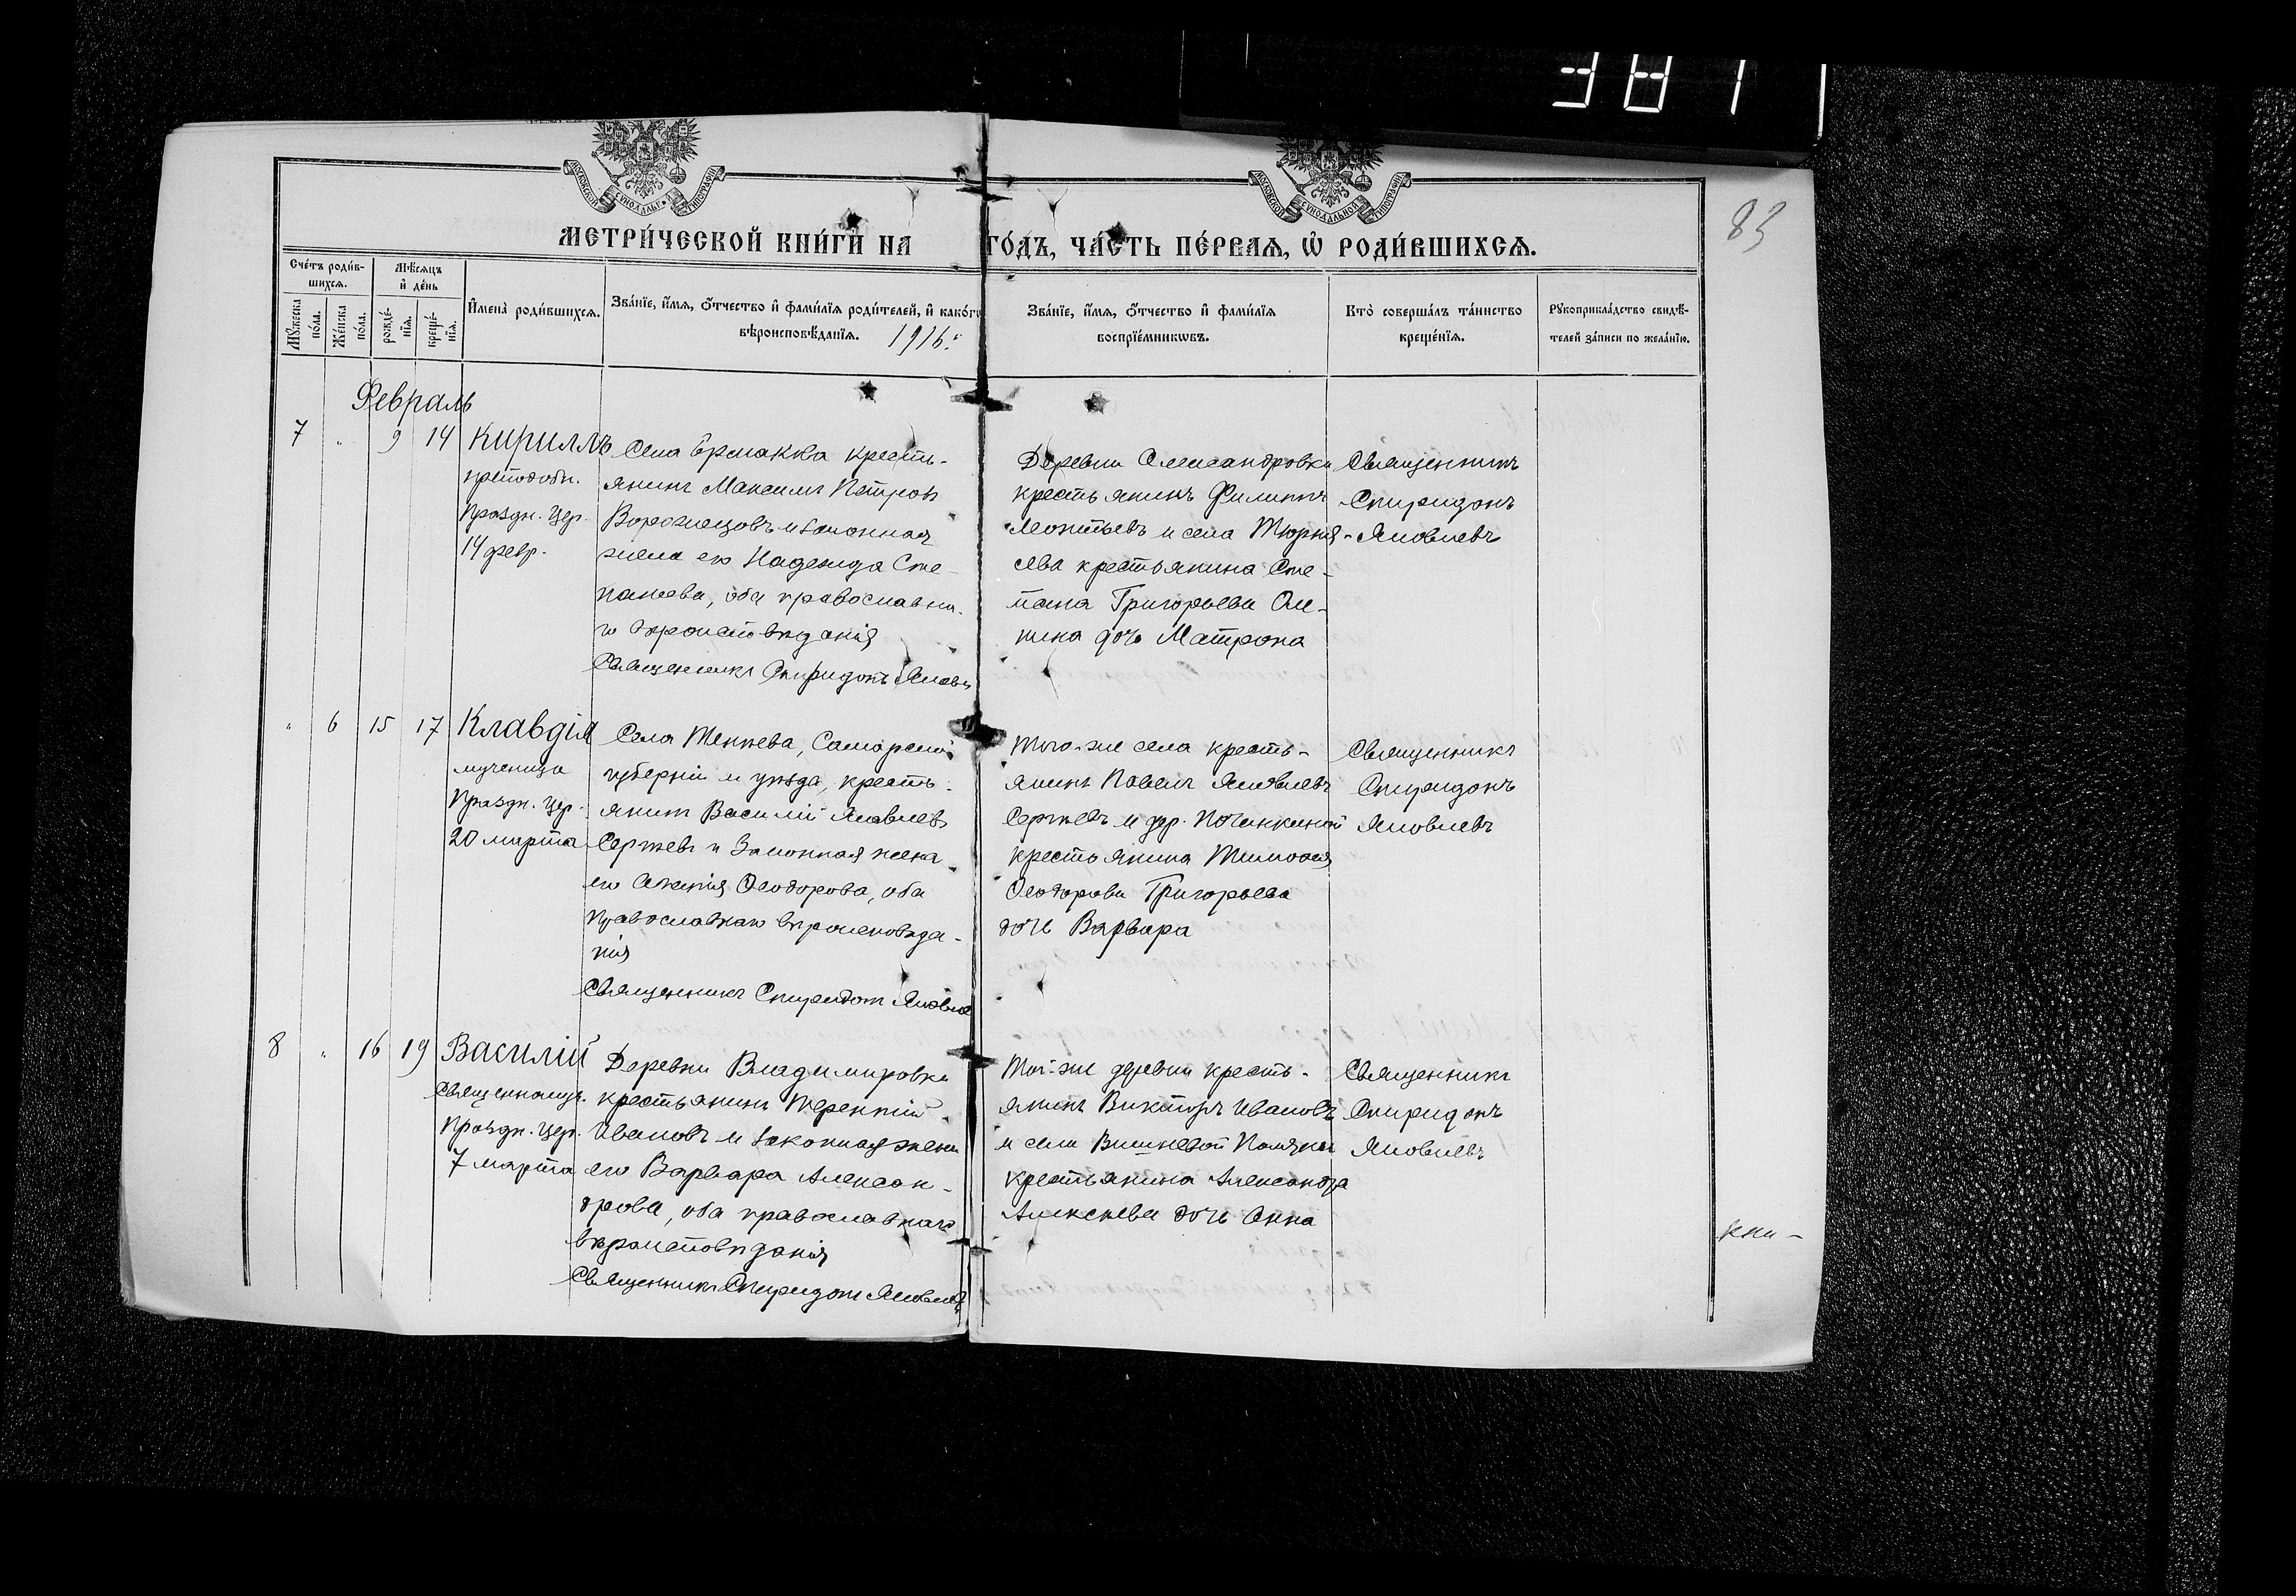 387
МОСКОВСКОЙ СѴНОДАЛЬН. ТИПОГРАФІИ
МОСКОВСКОЙ СѴНОДАЛЬНОЙ ТИПОГРАФІИ
83
МЕТРИ́ЧЕСКОЙ КНИ́ГИ НА ГО́ДЪ, ЧА́СТЬ ПЕ́РВАЯ, Ѡ РОДИ́ВШИХСЯ.
Сче́тъ роди́в-
шихся.
Мꙋ́жеска по́ла.
Же́нска по́ла.
Мѣ́сяцъ
и҆ де́нь
рожде́-
нїя.
креще́-
нїя.
И҆мена̀ роди́вшихся.
Зва́нїе, и҆́мя, ѻ҆́тчество и҆ фами́лїя роди́телей, и҆ како́гѡ
вѣроисповѣ́данїя.
1916 г.
Зва́нїе, и҆́мя, ѻ҆́тчество и҆ фами́лїя
воспрїе́мникѡвъ.
Кто̀ соверша́лъ та́инство
креще́нїя.
Рꙋкоприкла́дство свидѣ́-
телей за́писи по жела́нїю.
Февраль
7 " 9 14 Кириллъ
преподобн.
Праздн. Цер.
14 февр.
Села Ермакова кресть-
янинъ Максимъ Петровъ
и законная
жена его Надежда Сте-
панова, оба православна-
го вѣроисповѣданія
Священникъ Спиридонъ Яковлев
Деревни Александровки
крестьянинъ Филиппъ
Леонтьевъ и села Тюрня-
сева крестьянина Сте-
пана Григорьева
дочь Матрона
Священникъ
Спиридонъ
Яковлевъ
" 6 15 17 Клавдія
мученица
Праздн. Цер.
20 марта
Села Теннева, Самарской
губерніи и уѣзда, кресть-
янинъ Василій Яковлевъ
Сергѣевъ и законная жена
его Ксенія Ѳеодорова, оба
православнаго вѣроисповѣда-
нія
Священникъ Спиридонъ Яковлев
Того-же села кресть-
янинъ Павелъ Яковлевъ
Сергѣевъ и дер. Починкиной
крестьянина Тимоѳея
Ѳеодорова Григорьева
дочь Варвара
Священникъ
Спиридонъ
Яковлевъ
8 " 16 19 Василій
Священномуч.
Праздн. Цер.
7 марта
Деревни Владимировки
крестьянинъ Терентій
Ивановъ и законная жена
его Варвара Алексан-
дрова, оба православнаго
вѣроисповѣданія
Священникъ Спиридонъ Яковлев
Той-же деревни кресть-
янинъ Викторъ Ивановъ
и села Вишневой Поляны
крестьянина Александра
Алексѣева дочь Анна
Священникъ
Спиридонъ
Яковлевъ
кни-